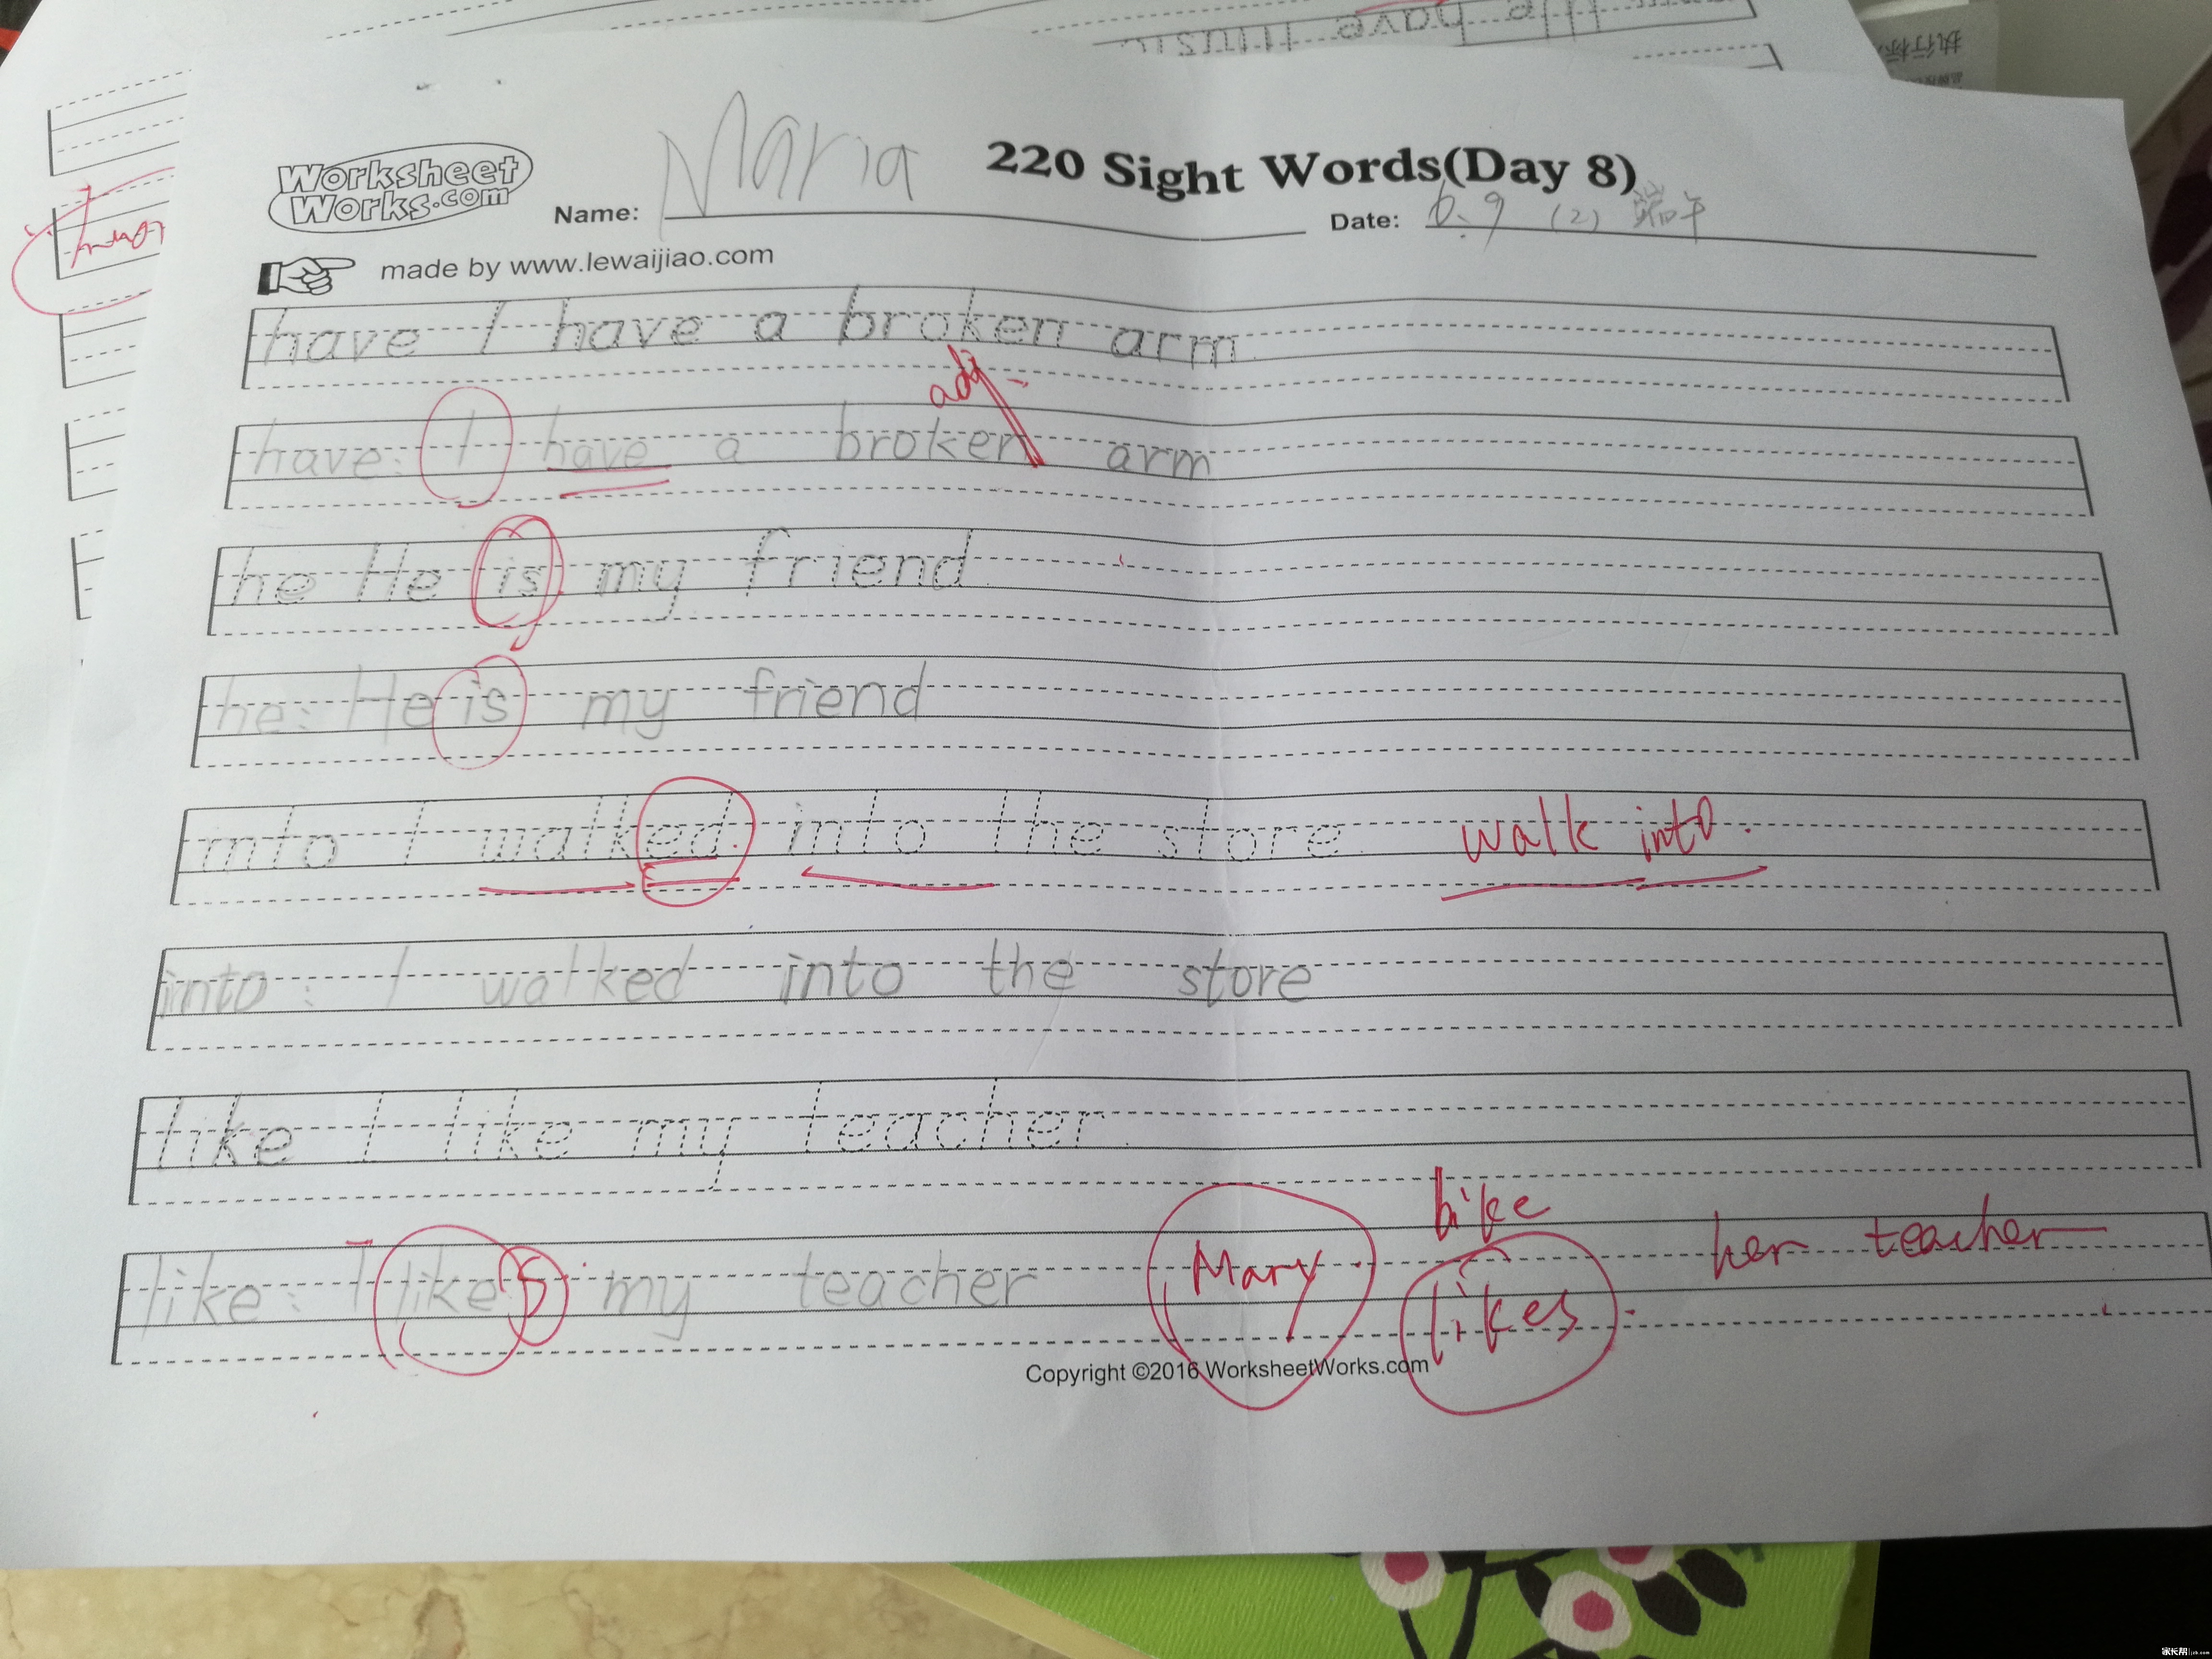 have music
执行标
Worksheet Works.com
Name: Maria
220 Sight Words(Day 8)
Date: 6.9 (2) 端午
made by www.lewaijiao.com
have I have a broken arm.
adj
have: I have a broken arm
he He is my friend.
he: He is my friend
into I walked into the store. walk into.
into: I walked into the store
like I like my teacher.
bike
like: I like s my teacher Mary likes. her teacher
Copyright ©2016 WorksheetWorks.com
家长帮 jzb.com